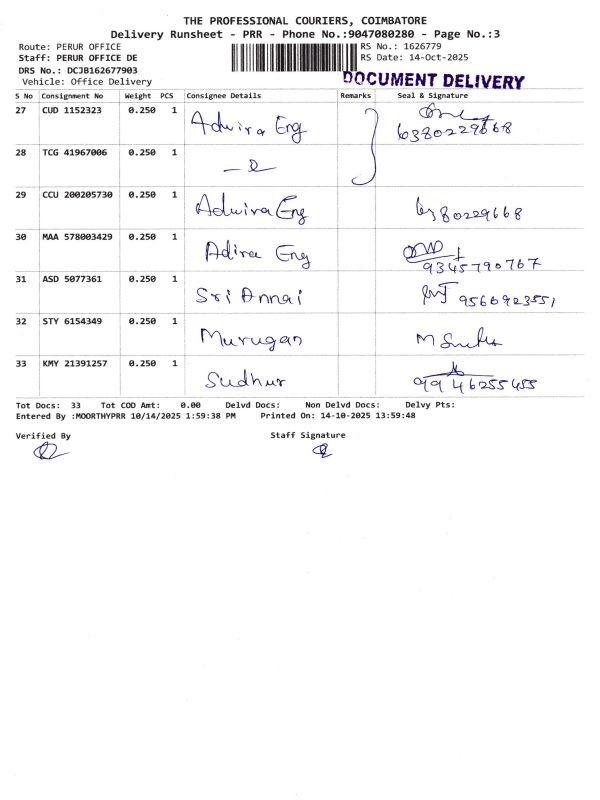 THE PROFESSIONAL COURIERS, COIMBATORE
Delivery Runsheet - PRR - Phone No.:9047080280 - Page No.:3
Route: PERUR OFFICE RS No.: 1626779
Staff: PERUR OFFICE DE RS Date: 14-Oct-2025
DRS No.: DCJB162677903
Vehicle: Office Delivery DOCUMENT DELIVERY
S No Consignment No Weight PCS Consignee Details Remarks Seal & Signature
27 CUD 1152323 0.250 1 Adwira Eng 6380229668
28 TCG 41967006 0.250 1
29 CCU 200205730 0.250 1 Adwira Eng 6380229668
30 MAA 578003429 0.250 1 Adira Eng 9345790767
31 ASD 5077361 0.250 1 Sri Annai 9566923551
32 STY 6154349 0.250 1 Murugan
33 KMY 21391257 0.250 1 Sudhur 9946255455
Tot Docs: 33 Tot COD Amt: 0.00 Delvd Docs: Non Delvd Docs: Delvy Pts:
Entered By :MOORTHYPRR 10/14/2025 1:59:38 PM Printed On: 14-10-2025 13:59:48
Verified By Staff Signature